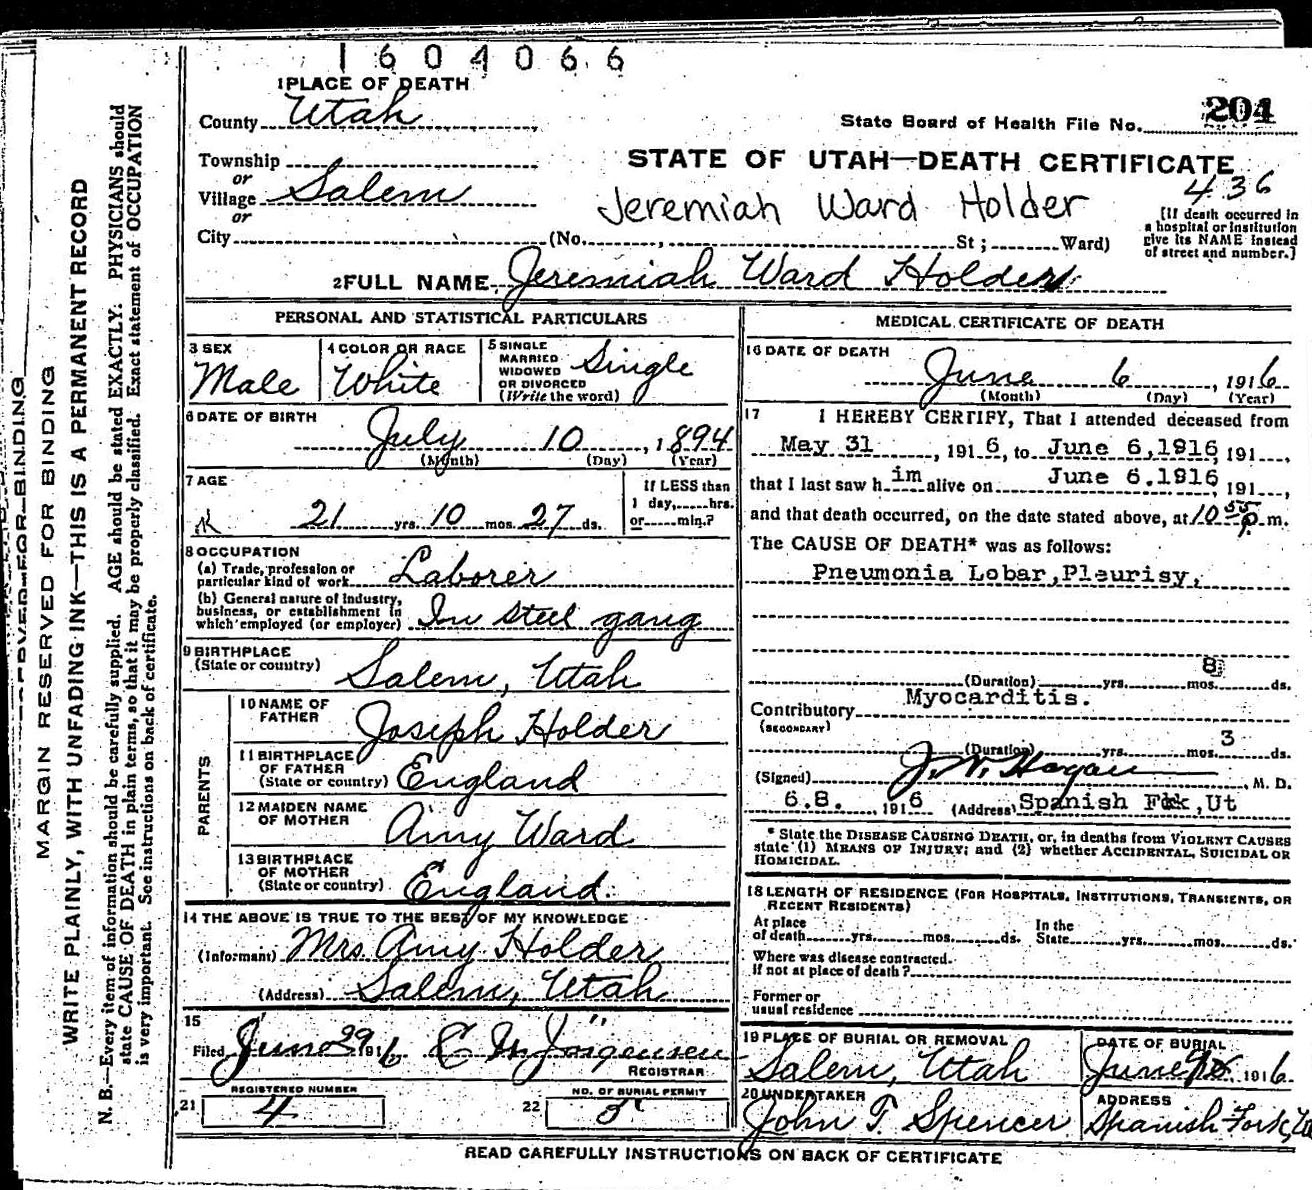 1604066
1 PLACE OF DEATH
County Utah
State Board of Health File No. 204
Township
or
Village Salem
or
City (No. , St ; Ward)
STATE OF UTAH—DEATH CERTIFICATE
436
Jeremiah Ward Holder
[If death occurred in
a hospital or institution
give its NAME instead
of street and number.]
2 FULL NAME Jeremiah Ward Holder
PERSONAL AND STATISTICAL PARTICULARS
3 SEX
Male
4 COLOR OR RACE
White
5 SINGLE
MARRIED
WIDOWED
OR DIVORCED
(Write the word)
Single
6 DATE OF BIRTH
July 10, 1894
(Month) (Day) (Year)
7 AGE
21 yrs. 10 mos. 27 ds.
If LESS than
1 day, hrs.
or min.?
8 OCCUPATION
(a) Trade, profession or
particular kind of work Laborer
(b) General nature of industry,
business, or establishment in
which employed (or employer) In steel gang
9 BIRTHPLACE
(State or country) Salem, Utah
PARENTS
10 NAME OF
FATHER Joseph Holder
11 BIRTHPLACE
OF FATHER
(State or country) England
12 MAIDEN NAME
OF MOTHER Amy Ward
13 BIRTHPLACE
OF MOTHER
(State or country) England.
14 THE ABOVE IS TRUE TO THE BEST OF MY KNOWLEDGE
(Informant) Mrs. Amy Holder
(Address) Salem, Utah
15
Filed June 29 1916
REGISTRAR
REGISTERED NUMBER
21 4
NO. OF BURIAL PERMIT
22
MEDICAL CERTIFICATE OF DEATH
16 DATE OF DEATH
June 6, 1916
(Month) (Day) (Year)
17 I HEREBY CERTIFY, That I attended deceased from
May 31, 191 6, to June 6,1916, 191 ,
that I last saw h im alive on June 6.1916, 191 ,
and that death occurred, on the date stated above, at 10 55 p. m.
The CAUSE OF DEATH* was as follows:
Pneumonia Lobar,Pleurisy,
8
(Duration) yrs. mos. ds.
Contributory Myocarditis.
(SECONDARY)
3
(Duration) yrs. mos. ds.
(Signed) , M. D.
6.8. , 191 6 (Address) Spanish Fk,Ut
* State the DISEASE CAUSING DEATH, or, in deaths from VIOLENT CAUSES
state (1) MEANS OF INJURY; and (2) whether ACCIDENTAL, SUICIDAL OR
HOMICIDAL.
18 LENGTH OF RESIDENCE (FOR HOSPITALS, INSTITUTIONS, TRANSIENTS, OR
RECENT RESIDENTS)
At place
of death yrs. mos. ds.
In the
State yrs. mos. ds.
Where was disease contracted.
If not at place of death?
Former or
usual residence
19 PLACE OF BURIAL OR REMOVAL
Salem, Utah
DATE OF BURIAL
June 1916
20 UNDERTAKER
John T. Spencer
ADDRESS
Spanish Fork,
READ CAREFULLY INSTRUCTIONS ON BACK OF CERTIFICATE
MARGIN RESERVED FOR BINDING
WRITE PLAINLY, WITH UNFADING INK—THIS IS A PERMANENT RECORD
N. B.—Every item of information should be carefully supplied. AGE should be stated EXACTLY. PHYSICIANS should
state CAUSE OF DEATH in plain terms, so that it may be properly classified. Exact statement of OCCUPATION
is very important. See instructions on back of certificate.